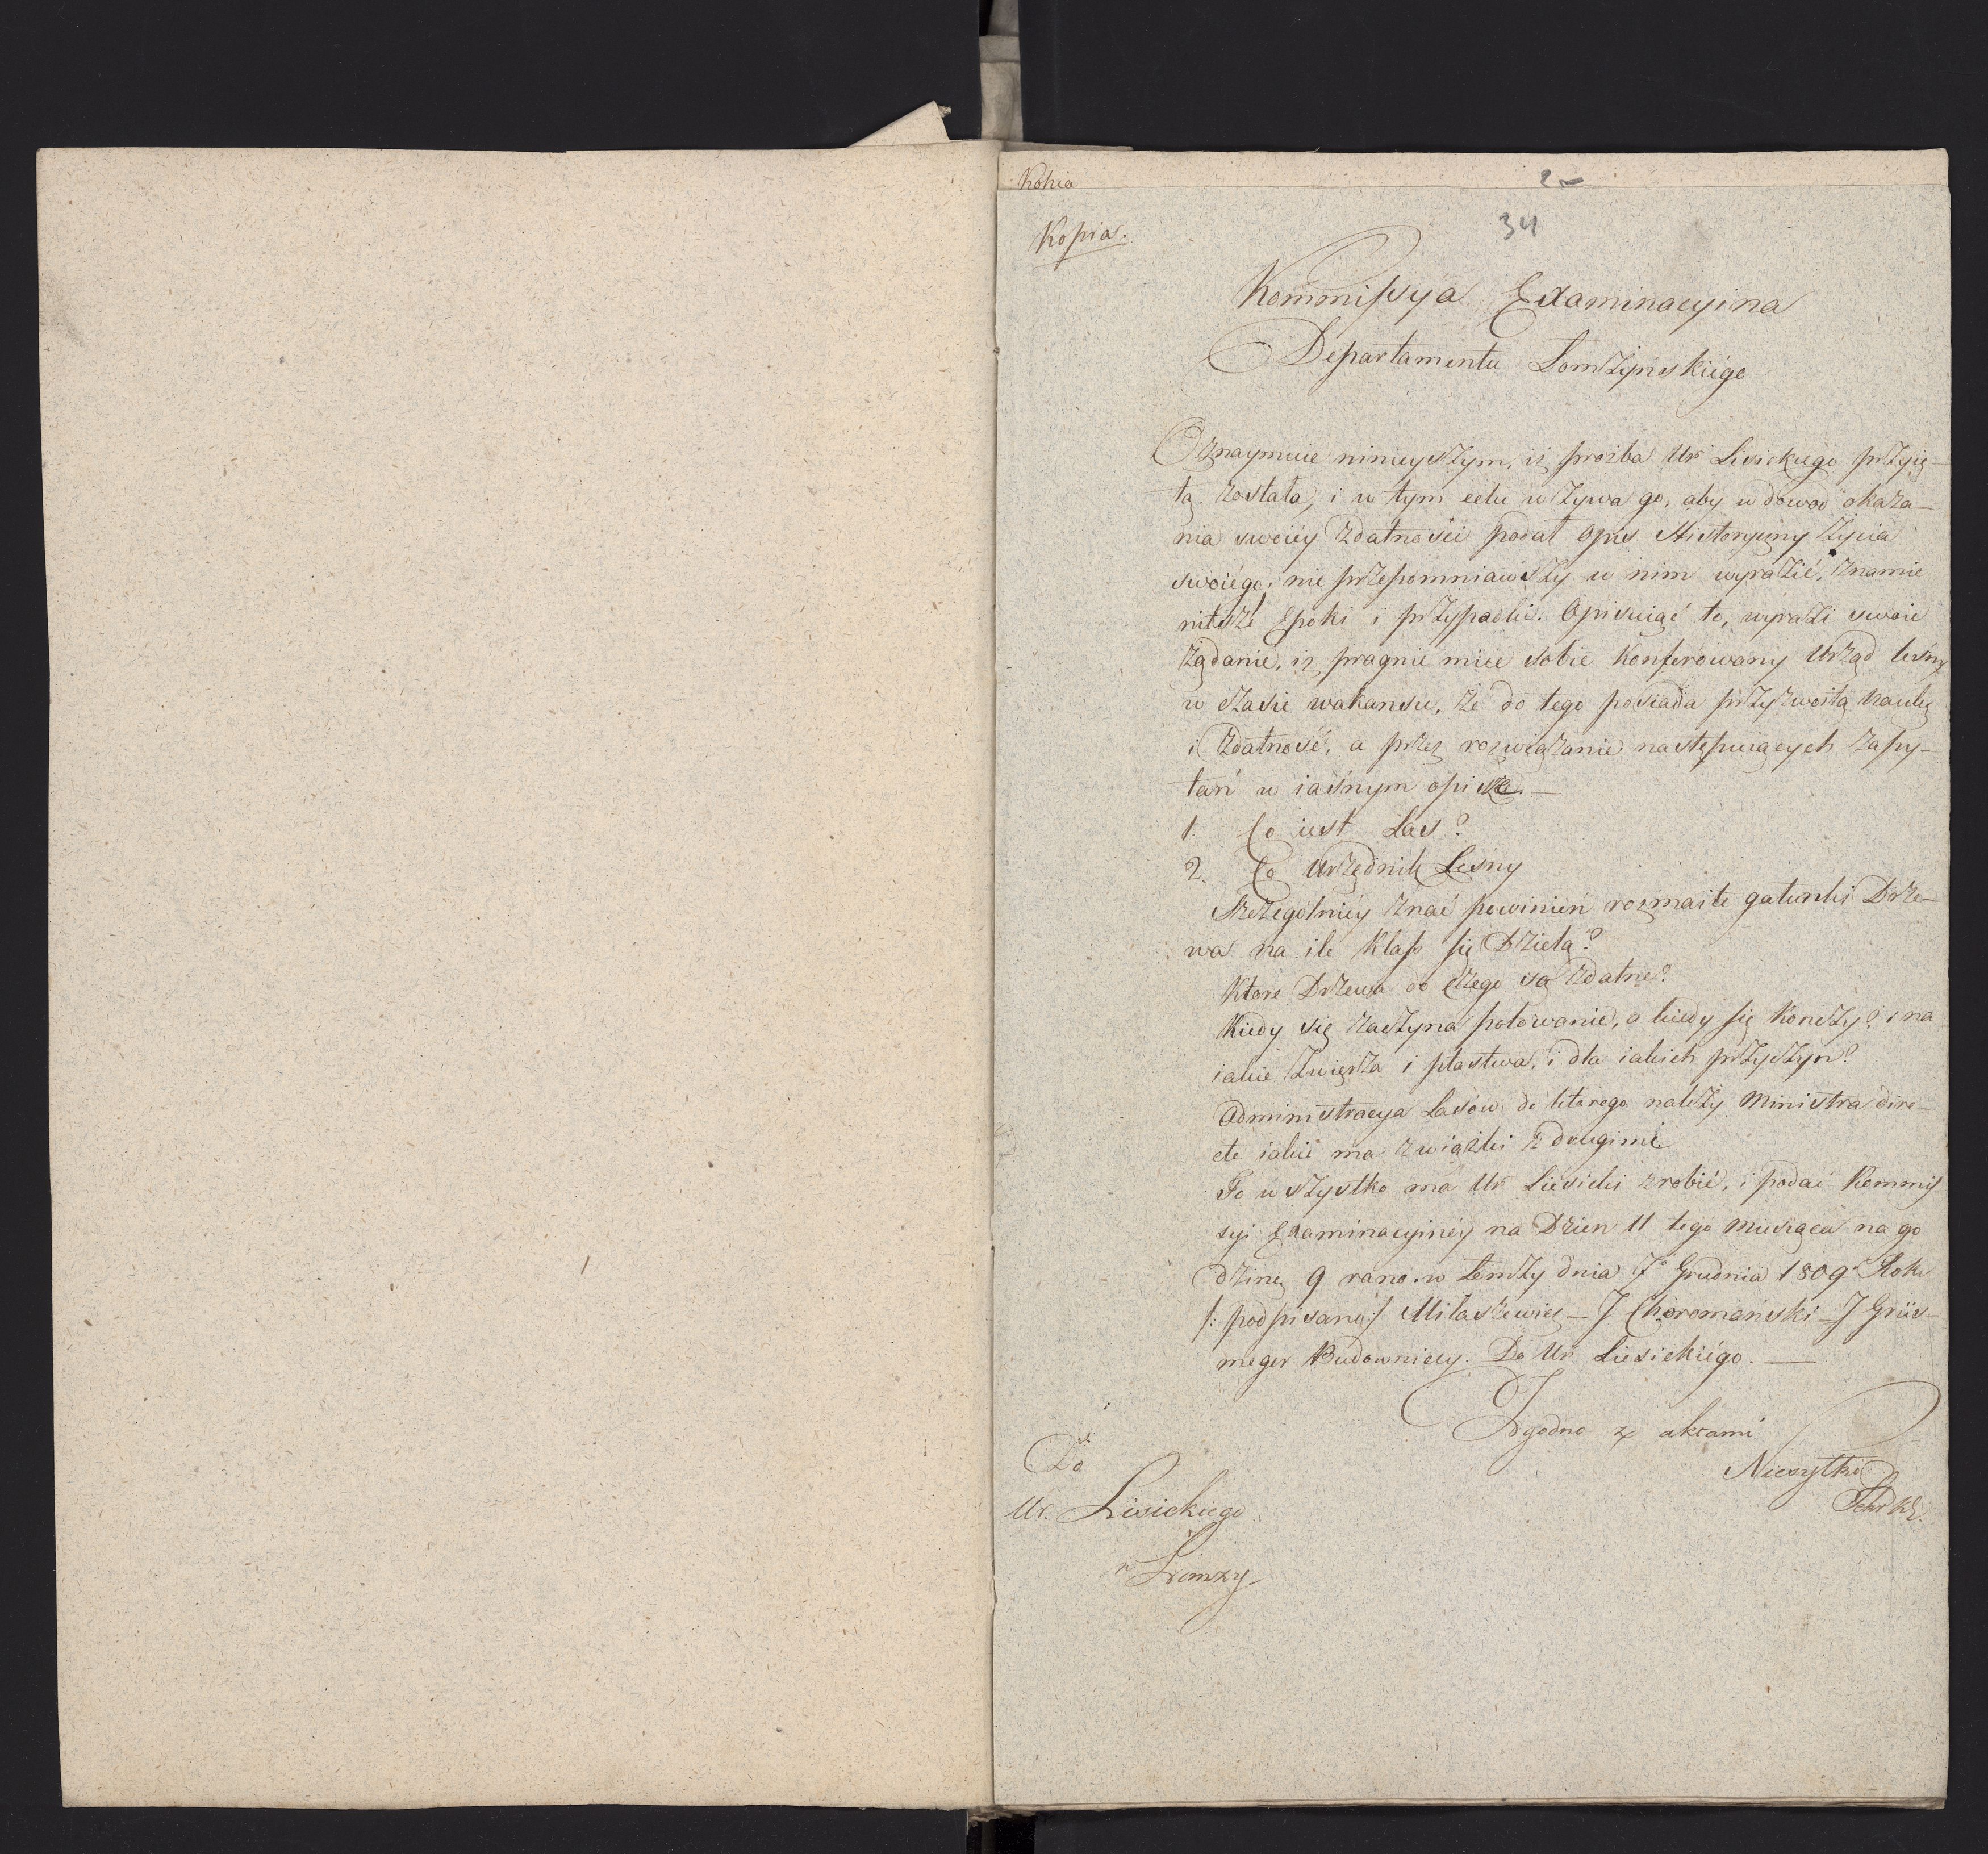 Kopia
2
Kopia.
34
Kommissya Examinacyina
Departamentu Łomżyńskiego
Oznaymuie ninieyszym, iż prozba Ur Lisickiego przyię-
ta została, i w tym celu wzywa go, aby w dowod okaza-
nia swoiéy zdatności podał Opis Historyczny życia
swoiégo, nie przepomniawszy w nim wyrazić, znamie
nitsze Epoki i przypadki. Opisuiąć to, wyrazi swoie
żądanie, iż pragnie miec sobie konferowany Urząd leśny
w czasie wakansu, że do tego posiada przyzwoitą naukę
i zdatność, a przez rozwiązanie następuiących zapy-
tań w iaśnym opisze.—
1. Co iest Las?
2. Co Urzędnik Leśny
Szczegolniéy znać powinień rozmaite gatunki Drze-
wa na ile Klass się Dzielą?
Ktore Drzewa do czego są zdatne?
Kiedy się zaczyna polowanie, a kiedy się konczy? i na
iakie zwięrza i ptastwa, i dla iakich przyczyn?
Administracya Lasów do ktorego należy Ministra dire-
cte iakie ma związki z drugimi
To wszystko ma Ur Liesicki zrobić, i podać Kommis
syi Examinacyinéy na Dzien 11 tego Miesiąca na go
dzinę 9 rano. w Łomży dnia 7º Grudnia 1809 Roku
/: podpisano:/ Milaszewicz — J Choromański — J Grüs-
meger Budowniczy. Do Ur Liesickiégo. —
Zgodno z aktami
Nieszytko
Sekr KE.
Do
Ur. Lisickiego
w Łomzy